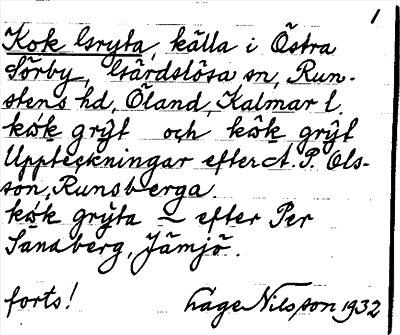 1
Kok Gryta, källa i Östra
Sörby, Gärdslösa sn, Run-
stens hd, Öland, Kalmar l.
kok gryt och kok gryt
Uppteckningar efter A. P. Ols-
son, Runsberga
kok gryta — efter Per
Sandberg, Jämjö.
forts! Åage Nilsson 1932